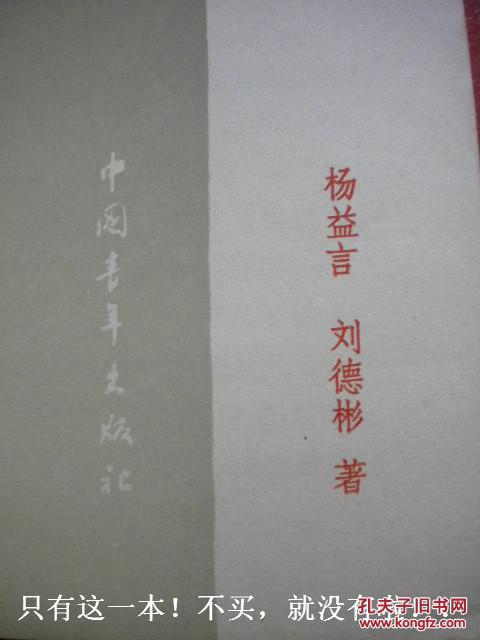 杨益言 刘德彬 著
中国青年出版社
只有这一本！不买，就没有
孔夫子旧书网
www.kongfz.com